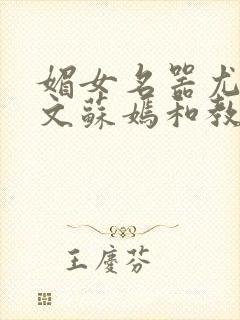 媚女名器尤
文蘇媽和教
王慶芬